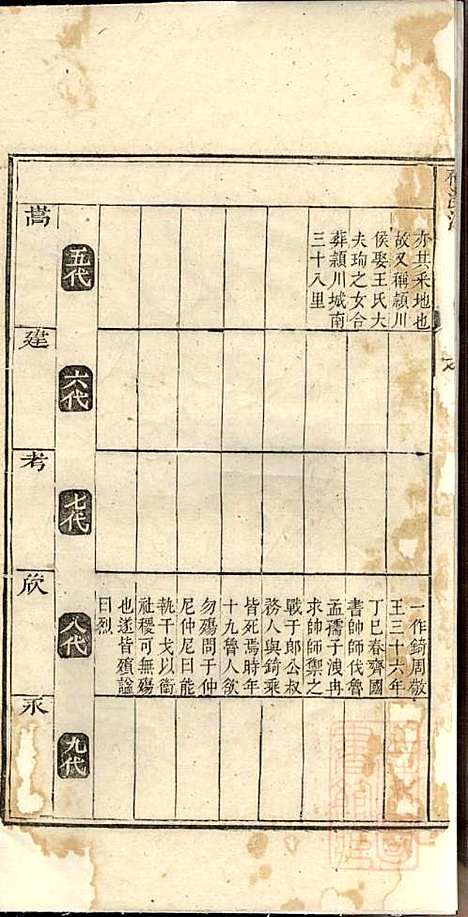 亦其采地也
故又稱頴川
侯娶王氏大
夫珣之女合
葬頴川城南
三十八里
一作錡周敬
王三十六年
丁巳春齊國
書帥師伐魯
孟孺子洩冉
求帥師禦之
戰于郎公叔
務人與錡乘
皆死焉時年
十九魯人欲
勿殤問于仲
尼仲尼曰能
執干戈以衛
社稷可無殤
也遂皆殯諡
曰烈
五代
六代
七代
八代
九代
嵩
建
考
欣
永